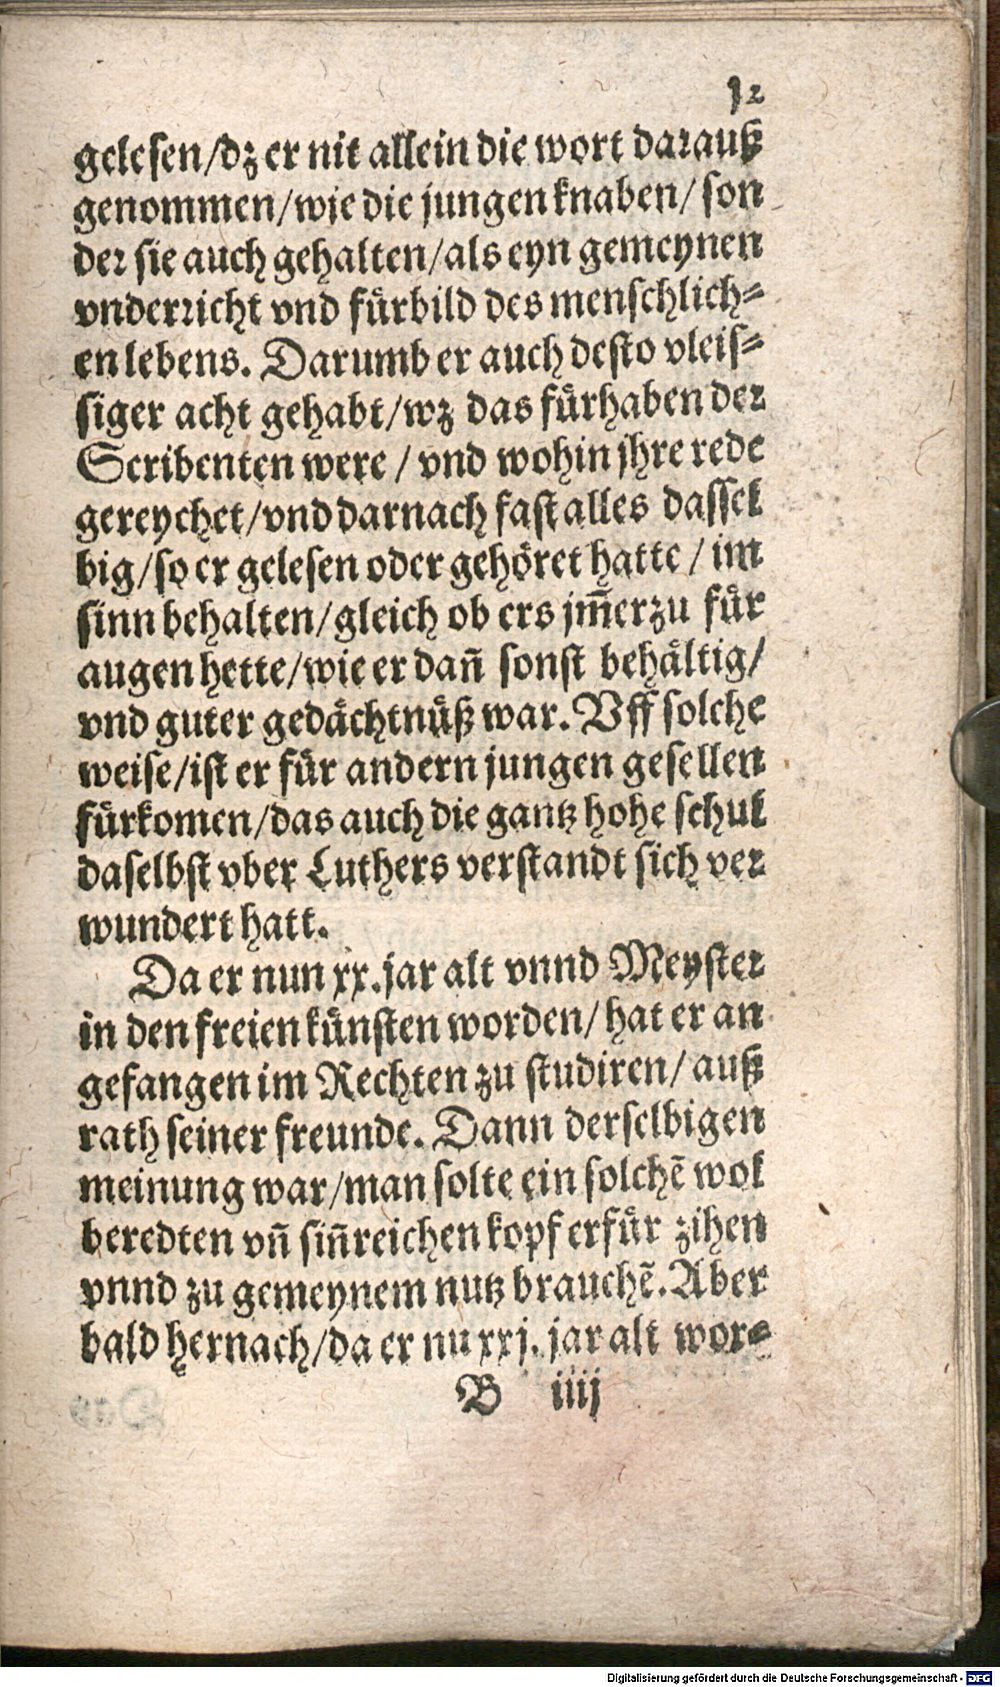 12
gelesen/dz er nit allein die wort darauß
genommen/wie die jungen knaben/ son
der sie auch gehalten/als eyn gemeynen
vnderricht vnd fürbild des menschlich⸗
en lebens. Darumb er auch desto vleis⸗
siger acht gehabt/wz das fürhaben der
Scribenten were / vnd wohin jhre rede
gereychet/vnd darnach fast alles dassel
big/so er gelesen oder gehöret hatte / im
sinn behalten/gleich ob ers jm̃erzu für
augen hette/wie er dañ sonst behältig/
vnd guter gedächtnüß war. Vff solche
weise/ist er für andern jungen gesellen
fürkomen/das auch die gantz hohe schul
daselbst vber Luthers verstandt sich ver
wundert hatt.
Da er nun xx. jar alt vnnd Meyster
in den freien künsten worden/ hat er an
gefangen im Rechten zu studiren/ auß
rath seiner freunde. Dann derselbigen
meinung war/man solte ein solchẽ wol
beredten vñ siñreichen kopf erfür zihen
vnnd zu gemeynem nutz brauchẽ. Aber
bald hernach/da er nu xxj. jar alt wor⸗
B iiij
Digitalisierung gefördert durch die Deutsche Forschungsgemeinschaft - DFG